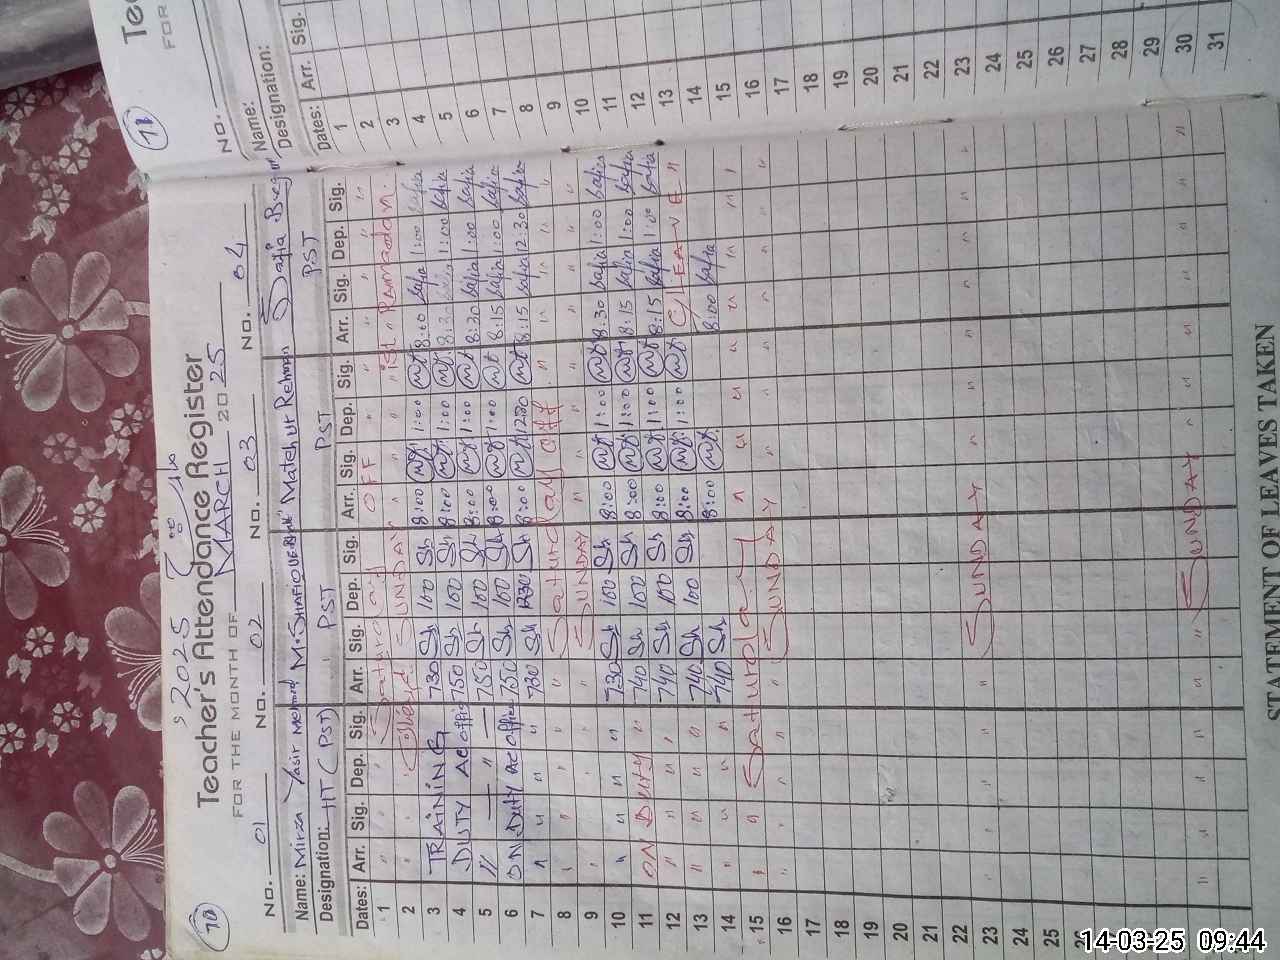 70
2025
Teacher's Attendance Register
FOR THE MONTH OF MARCH 2025
No. 01 No. 02 No. 03 No. 04
Name: Mirza Yasir M·SHAFIQUE Match ut Rehman Safia Begum
Designation: HT (PST) PST PST PST
Dates: Arr. Sig. Dep. Sig. Arr. Sig. Dep. Sig. Arr. Sig. Dep. Sig. Arr. Sig. Dep. Sig.
1 " " " Saturday OFF " " " " "
2 " " " SUNDAY " " " 1st Ramadan.
3 TRAINING 730 Sh 100 Sh 8:00 1:00 8:00 Safia 1:00 Safia
4 DUTY AC office 750 Sh 100 Sh 8:00 1:00 8:20 Safia 1:00 Safia
5 " — " — 750 Sh 100 Sh 8:00 1:00 8:20 Safia 1:00 Safia
6 ON Duty AC office 750 Sh 100 Sh 8:00 1:00 8:15 Safia 1:00 Safia
7 " " " " 730 Sh 1230 Sh 8:00 1230 8:15 Safia 12:30 Safia
8 " " " " " Saturday off " " " " "
9 " " " " " SUNDAY " " " " " "
10 " " " " 730 Sh 100 Sh 8:00 1:00 8:30 Safia 1:00 Safia
11 ON DUTY " 740 Sh 100 Sh 8:00 1:00 8:15 Safia 1:00 Safia
12 " " " " 740 Sh 100 Sh 8:00 1:00 8:15 Safia 1:00 Safia
13 " " " " 740 Sh 100 Sh 8:00 1:00 C/LEAVE "
14 " " " " 740 Sh 8:00 8:00 Safia
15 " " Saturday " " " " " " "
16 " " " " SUNDAY " " " " " "
17
18
19
20
21
22
23 " " " " " SUNDAY " " " " " "
24
25
26
30 " " " " " SUNDAY " " " " "
STATEMENT OF LEAVES TAKEN
71
No.
Name:
Designation:
Dates: Arr. Sig.
1
2
3
4
5
6
7
8
9
10
11
12
13
14
15
16
17
18
19
20
21
22
23
24
25
26
27
28
29
30
31
14-03-25 09:44